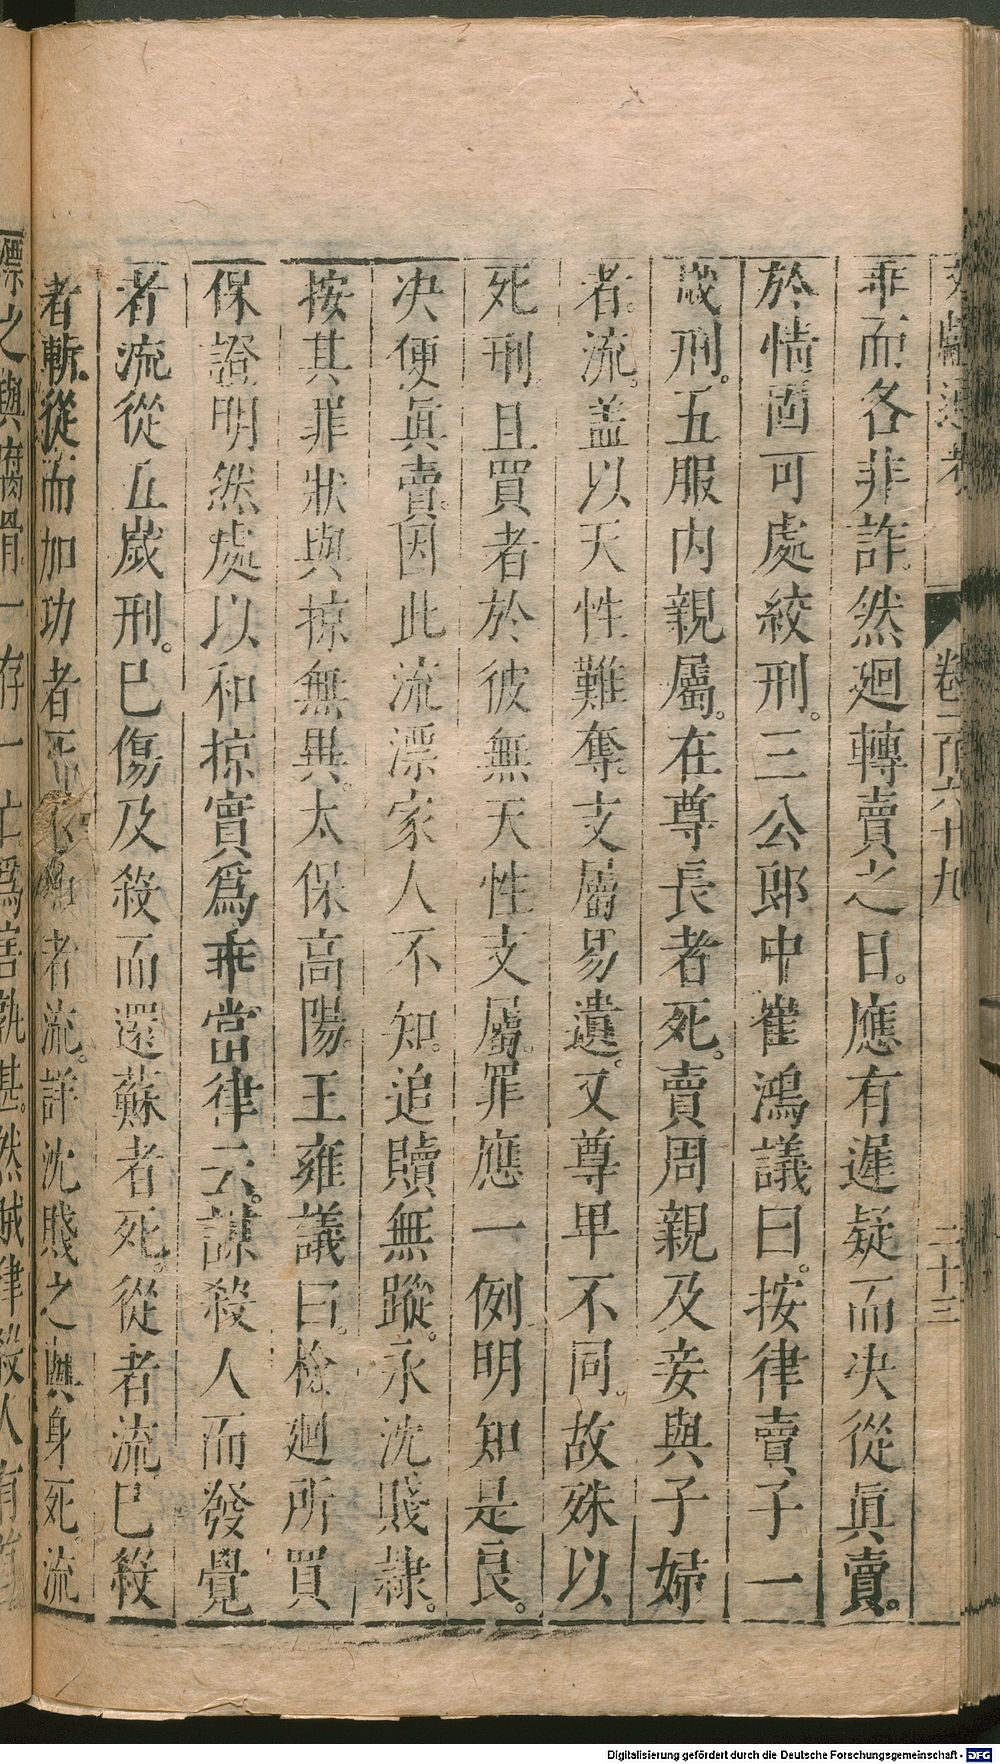 文獻通考 卷一百六十九 二十三
乖而各非詐然廻轉賣之日。應有遲疑而决從眞賣。
於情固可處絞刑。三公郎中崔鴻議曰。按律賣子一
歲刑。五服内親屬。在尊長者死。賣周親及妾與子婦
者。流。盖以天性難奪。支屬易遺。又尊卑不同。故殊以
死刑且買者於彼無天性支屬。罪應一例明知是良。
决便眞賣。因此流漂家人不知。追贖無蹤。永沈賤隷。
按其罪狀與掠無異。太保高陽。王雍議曰。檢廻所買
保證明然處以和掠實爲乖當。律云。謀殺人而發覺
者流從五歲刑。已傷及殺而還蘇者死。從者流已殺
者斬從而加功者死不加者流。詳沈賤之與身死。流
漂之與腐骨。一存一亡。爲害孰甚。然賊律殺人有首
Digitalisierung gefördert durch die Deutsche Forschungsgemeinschaft - DFG